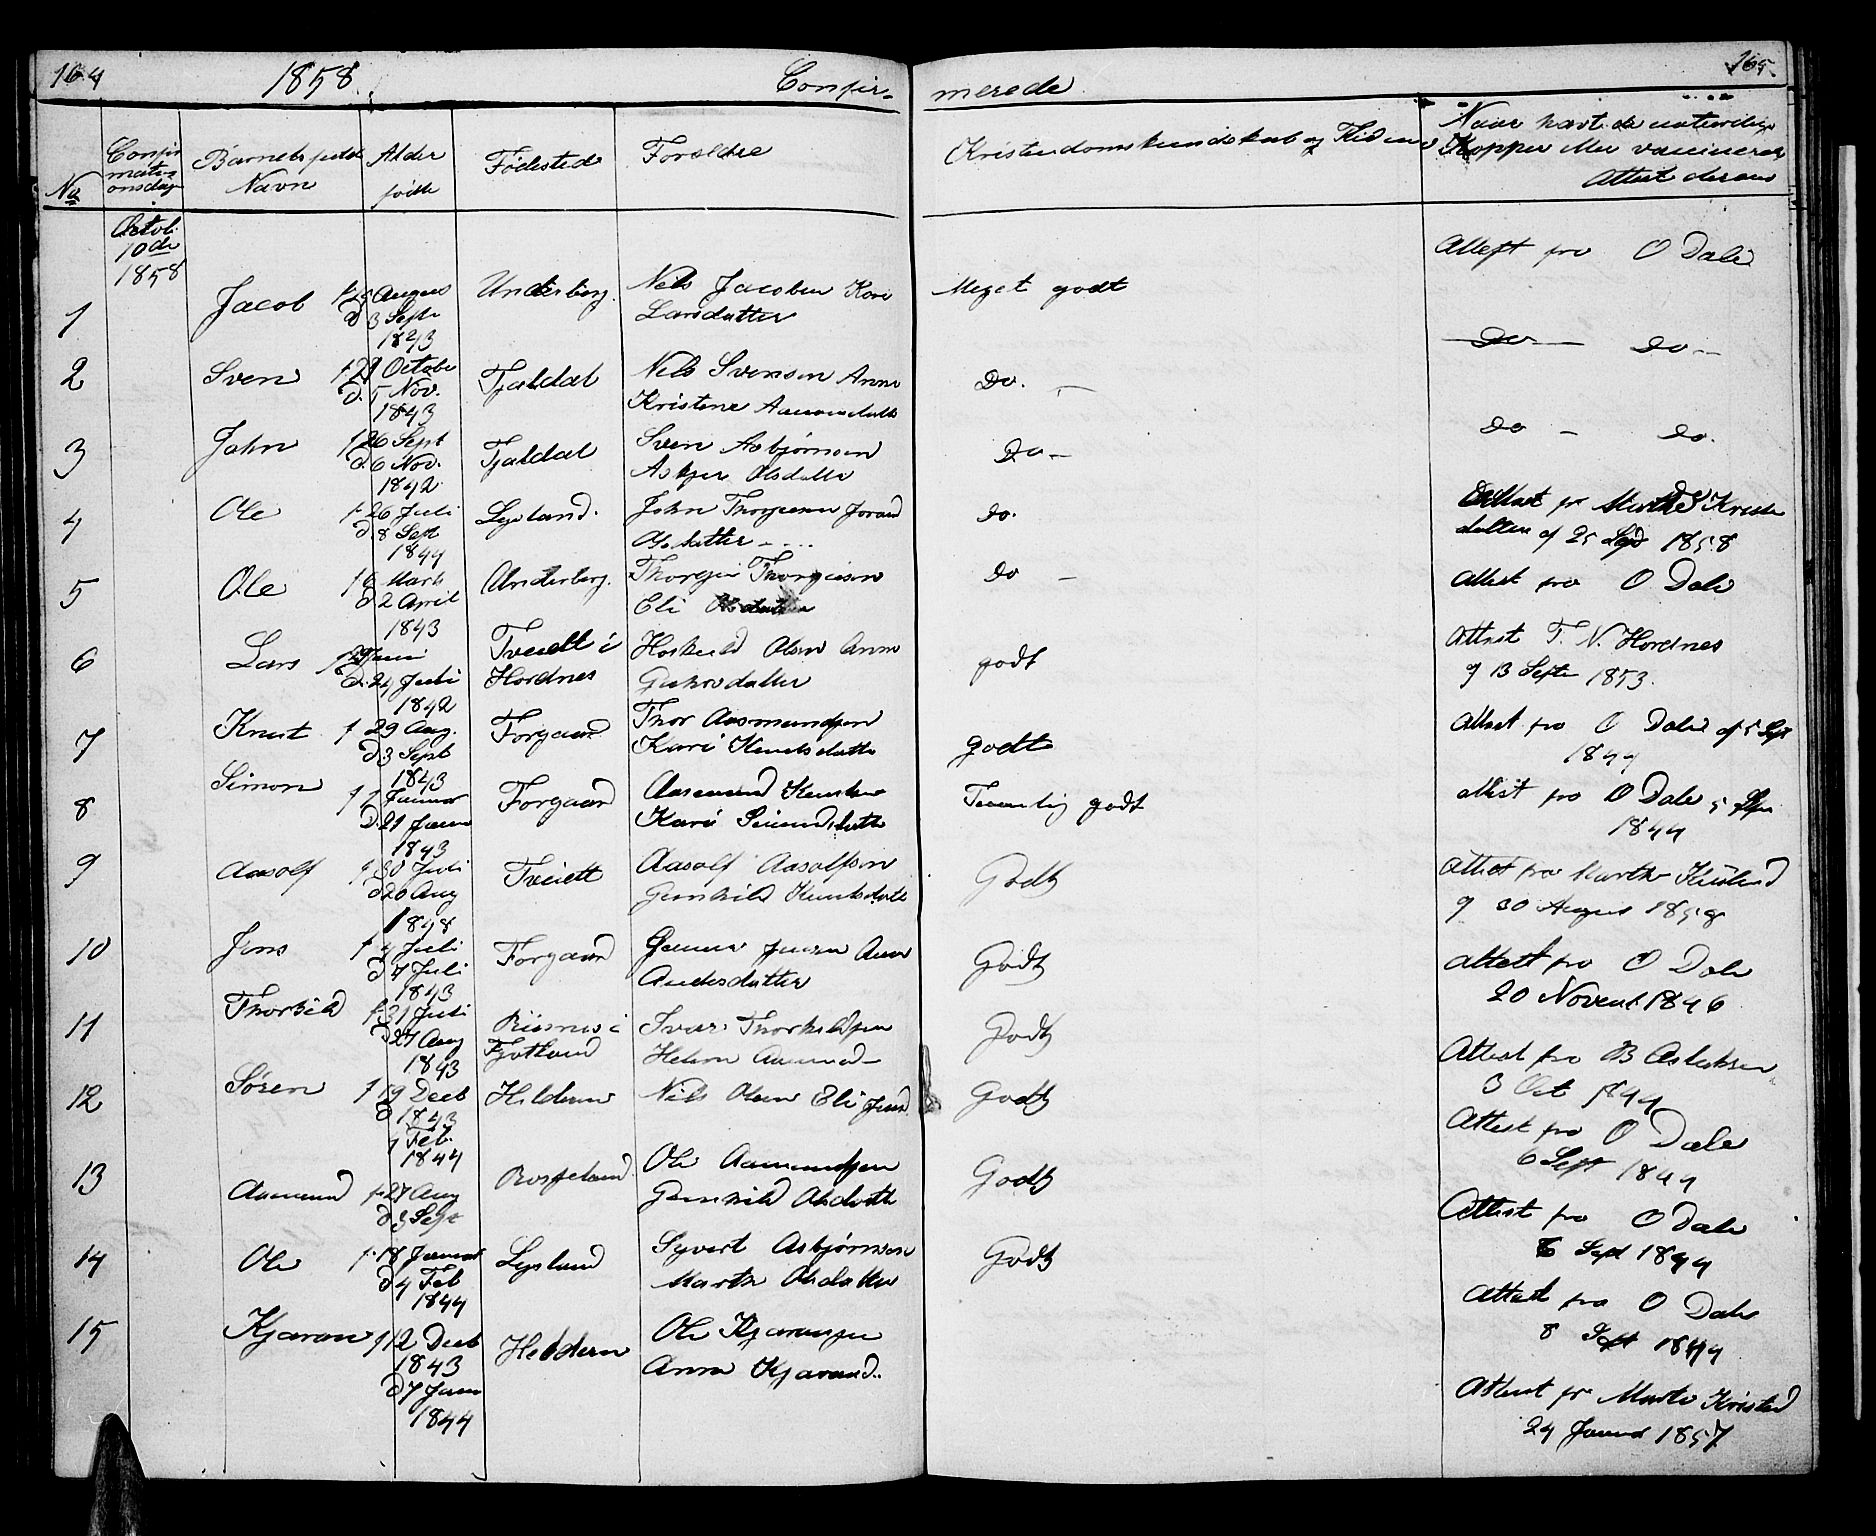 164
1858.
Confir-
merede
165.
No
Confir
mati-
onsdag
Barnets fulde
Navn
Alder
født
Fødested
Forældre
Kristendomskundskab og Flid
Naar havt de naturlige
Kopper eller vaccineret
Attest derom
Octob.
10de
1858
1
Jacob
f. 25 August
D 3 Sept
1843
Underberg.
Nels Jacobsen Kari
Larsdatter
Meget godt
Attest fra O Dale
2
Sven
f. 21 October
D. 5 Nov.
1843
Tjaldal
Nels Svensen Anne
Kristene Aanensdatt
Do. -
Do - Do -
3
John
f 26 Sept
D. 6 Nov.
1842
Tjaldal
Sven Asbjørnsen
Asbjør Olsdatter
Do -
Do - Do.
4
Ole
f. 26 Juli
D. 8 Sept
1844
Lysland.
John Thorgiersen Jorand
Olsdatter - ...
Do.
Attest fr Marthe Kristen
datter af 25 1858
5
Ole
f 6 Marts
D 2 April
1843
Underberg.
Thorgier Thorgiersen
Eli Olsdatter
Do -
Attest fra O Dale
6
Lars
Juni
D. 24 Juli
1842
Tveidt i
Hordnes
Hoskuld Olsen Anne
godt
Attest T. N. Hordnes
af 13 Septe 1853.
7
Knut
f 29 Aug.
D 3 Sept
1843
Forgaard
Thor Aasmundsen
Kari Knudsdatte
godt
Attest fra O Dale af 5 Sept
1844
8
Simon
f 1 Januar
D. 21 Janu
1843
Forgaard
Aasmund Knutsen
Kari Simonsdatte
Temmelig godt
Attest fra O Dale 5 Sep
1844
9
Aasolf
f. 30 Juli
D 20 Aug
1843
Tveidt
Aasolf Aasolfsen
Gunhild Knutsdatte
Godt
Attest fra Marthe Kristensd
af 30 August 1858
10
Jens
f. 4 Juli
D 4 Juli
1843
Forgaard
Gunnar Jensen Anne
Andersdatter
Godt
Attest fra O Dale
20 Novemb. 1846
11
Thorkild
f. 31 Juli
D 27 Aug
1843
Risnes i
Fjotland
Ivar Thorkildsen
Helene Aamund-
Godt
Attest fra B Aslaksen
3 Oct 1844
12
Søren
f 19 Decb
D 1843
4 Feb.
1844
Hildern
Nils Olsen Eli Jensd
Godt
Attest fra O Dale
6 Sept 1844
13
Aamund
f. 27 Aug
D 3 Sept
Rosseland
Ole Aamundsen
Gunhild Olsdatte
Godt
Attest fra O Dale
6 Sept 1844
14
Ole
f. 18 Januar
D 4 Feb
1844
Lysland
Syvert Asbjørnsen
Marthe Olsdatter
Godt
Attest fra O Dale
8 Sept 1844
15
Kjaran
f 12 Decb
1843
D 7 Janu
1844
Heddern
Ole Kjaransen
Anne Kjarand..
Attest fr Marte Kristensd
24 Januar 1857